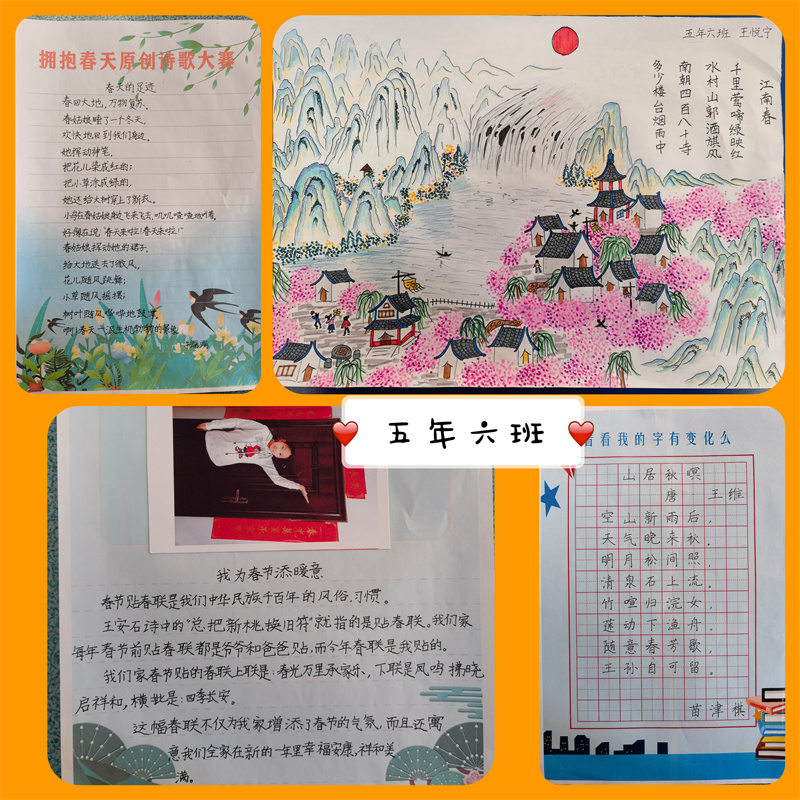 拥抱春天原创诗歌大赛
春天的足迹
春回大地，万物复苏、
春姑娘睡了一个冬天，
欢快地回到我们身边。
她挥动神笔，
把花儿染成红的；
把小草涂成绿的，
她还给大树穿上了新衣。
小鸟在春姑娘身边飞来飞去，叽叽喳喳地叫着，
好像在说“春天来啦！春天来啦！”
春姑娘挥动她的裙子，
给大地送去了微风，
花儿随风跳舞；
小草随风摇摆；
树叶随风哗哗地鼓掌，
啊！春天一派生机勃勃的景象
五年六班 王悦宁
江南春
千里莺啼绿映红
水村山郭酒旗风
南朝四百八十寺
多少楼台烟雨中
五年六班
我为春节添暖意
春节贴春联是我们中华民族千百年的风俗习惯。
王安石诗中的“总把新桃换旧符”就指的是贴春联。我们家
每年春节前贴春联都是爷爷和爸爸贴，而今年春联是我贴的。
我们家春节贴的春联上联是：春光万里承家乐，下联是凤鸣拂晓
启祥和，横批是：四季长安。
这幅春联不仅为我家增添了春节的气氛，而且还寓
意我们全家在新的一年里幸福安康，祥和美
满。
看看我的字有变化么
山居秋暝
唐 王维
空山新雨后，
天气晚来秋。
明月松间照，
清泉石上流。
竹喧归浣女，
莲动下渔舟。
随意春芳歇，
王孙自可留。
苗津棋